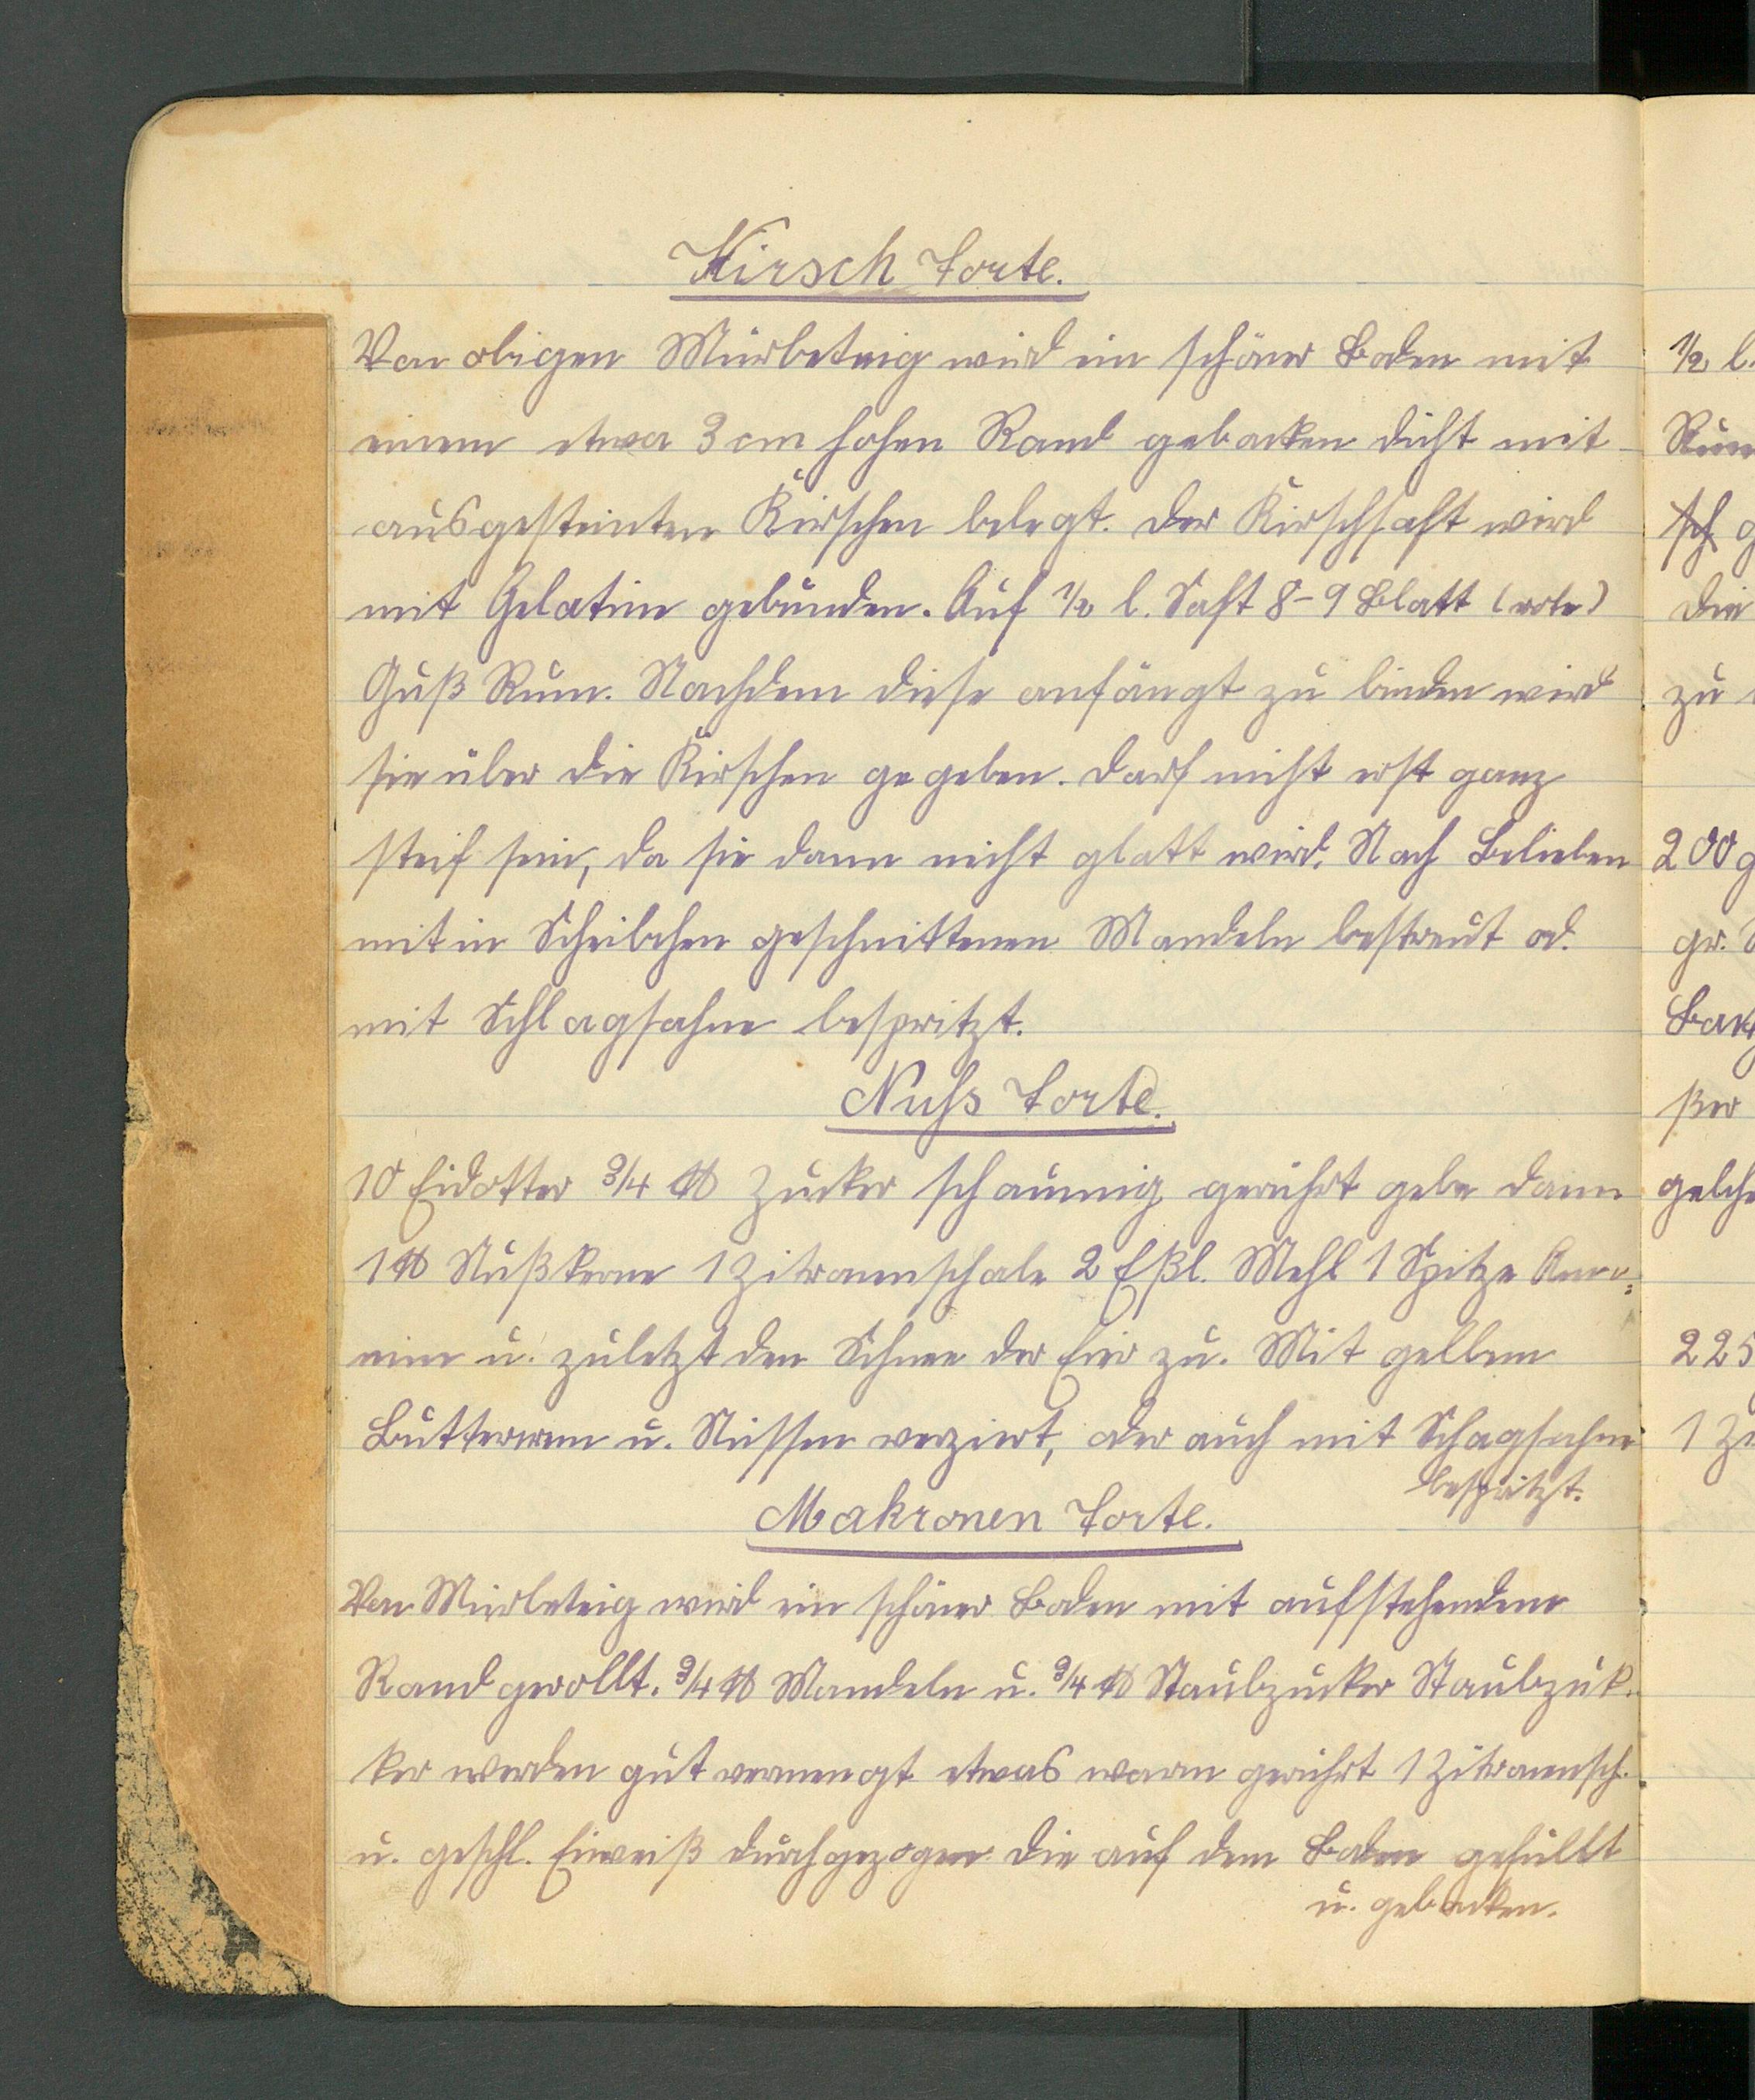 Kirsch Torte.
Von obigen Mürbeteig wird ein schöner Boden mit
einem etwa 3 cm hohen Rand gebacken dicht mit
ausgesteinten Kirschen belegt. Der Kirschsaft wird
mit Gelatine gebunden. Auf 1/2 l. Saft 8-9 Blatt (rote)
Guß Rum. Nachdem diese anfängt zu binden wird
sie über die Kirschen gegeben. Darf nicht erst ganz
steif sein, da sie dann nicht glatt wird. Nach Belieben
mit in Scheibchen geschnittenen Mandeln bestreut od.
mit Schlagsahne bespritzt.
Nuss Torte.
10 Eidotter 3/4 ℔ Zucker schaumig gerührt gebe dann
1 ℔ Nußkerne 1 Zitronenschale 2 Eßl. Mehl 1 Spitze
u. zuletzt den Schnee der Eier zu. Mit gelbem
Buttercrem u. Nüssen verziert, oder auch mit Schagsahne
bespritzt.
Makronen Torte.
Von Mürbeteig wird ein schöner Boden mit aufstehendem
Rand gerollt. 3/4 ℔ Mandeln u. 3/4 ℔ Staubzucker Staubzuk-
ker werden gut vermengt etwas warm gerührt 1 Zitronensch.
u. geschl. Eiweiß durchgezogen die auf dem Boden gefüllt
u. gebacken.
1/2 l.
Rum
sch g
die
zu
200 g
gr.
ßer
gelche
225
1 Zi